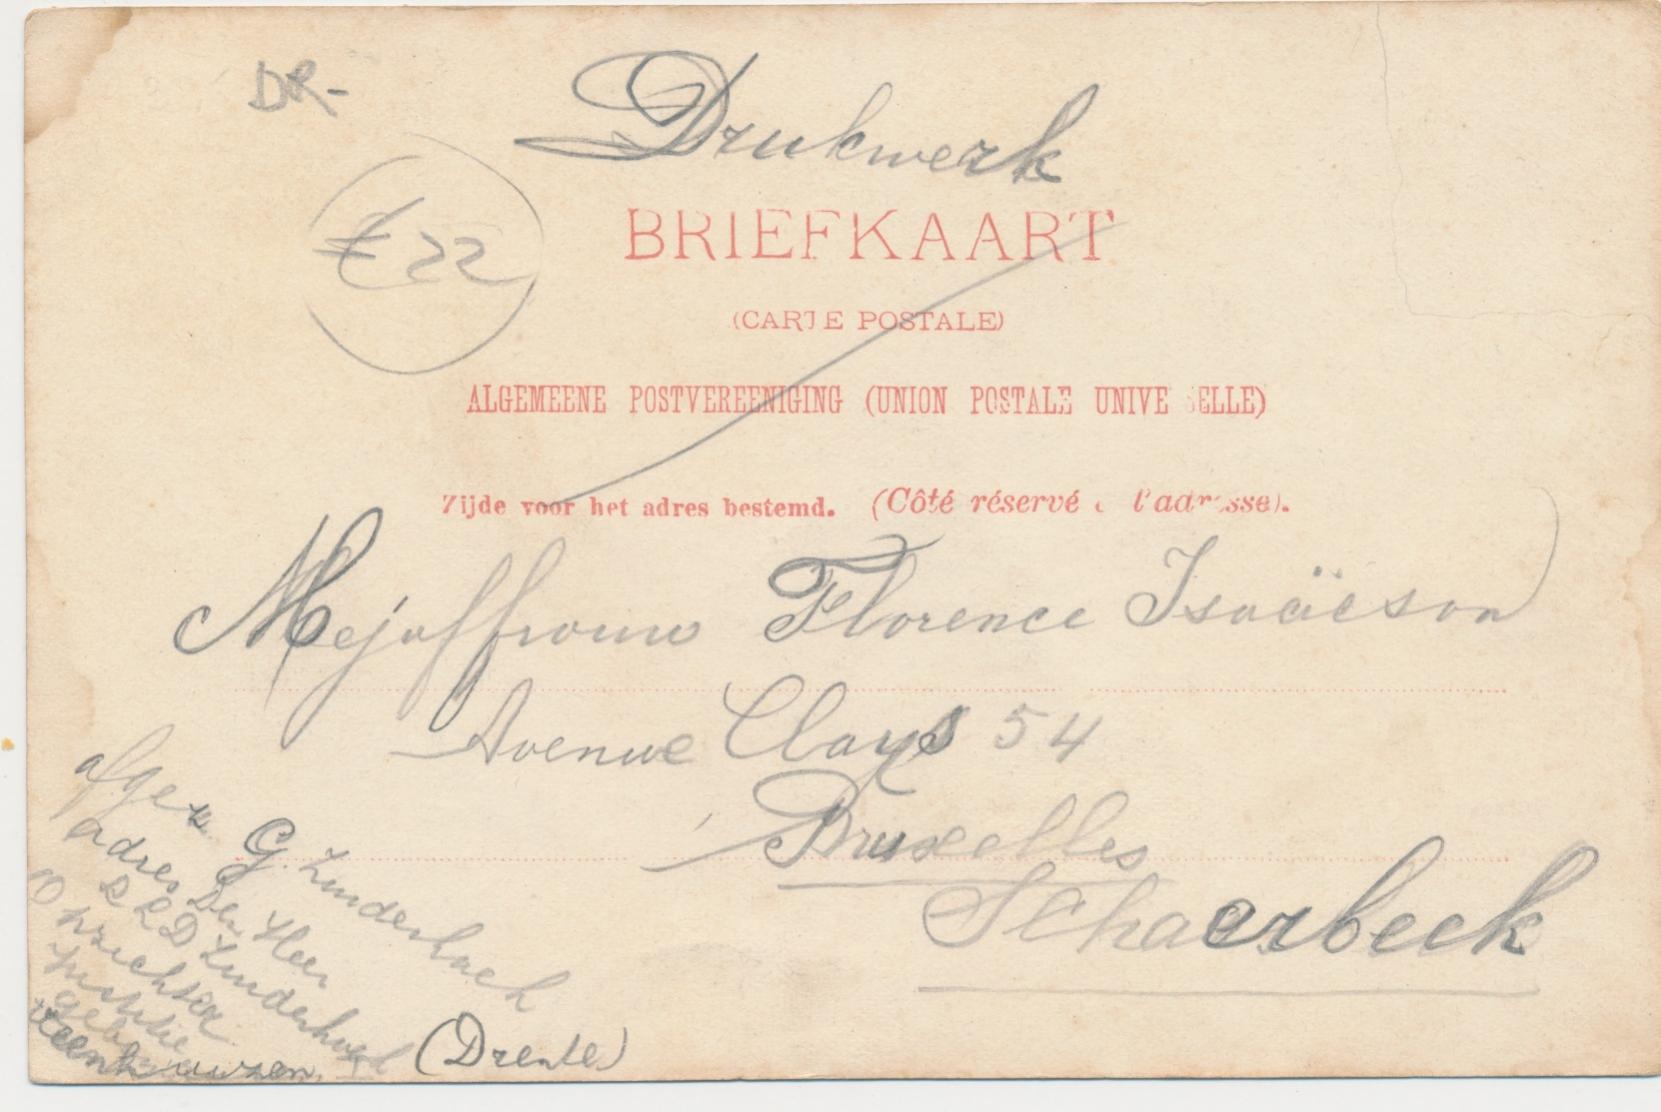 DR-
Drukwerk
€ 22
BRIEFKAART
(CARTE POSTALE)
ALGEMEENE POSTVEREENIGING (UNION POSTALE UNIVE SELLE)
Zijde voor het adres bestemd. (Côté réservé à l'adresse).
Mejuffrouw Florence Isaäcson
Avenue Clays 54
Bruxelles
Schaerbeek
afgez. G.
adres Den Heer
R L D
Opzichter
justitie
gebouwen
Veenhuizen. (Drente)